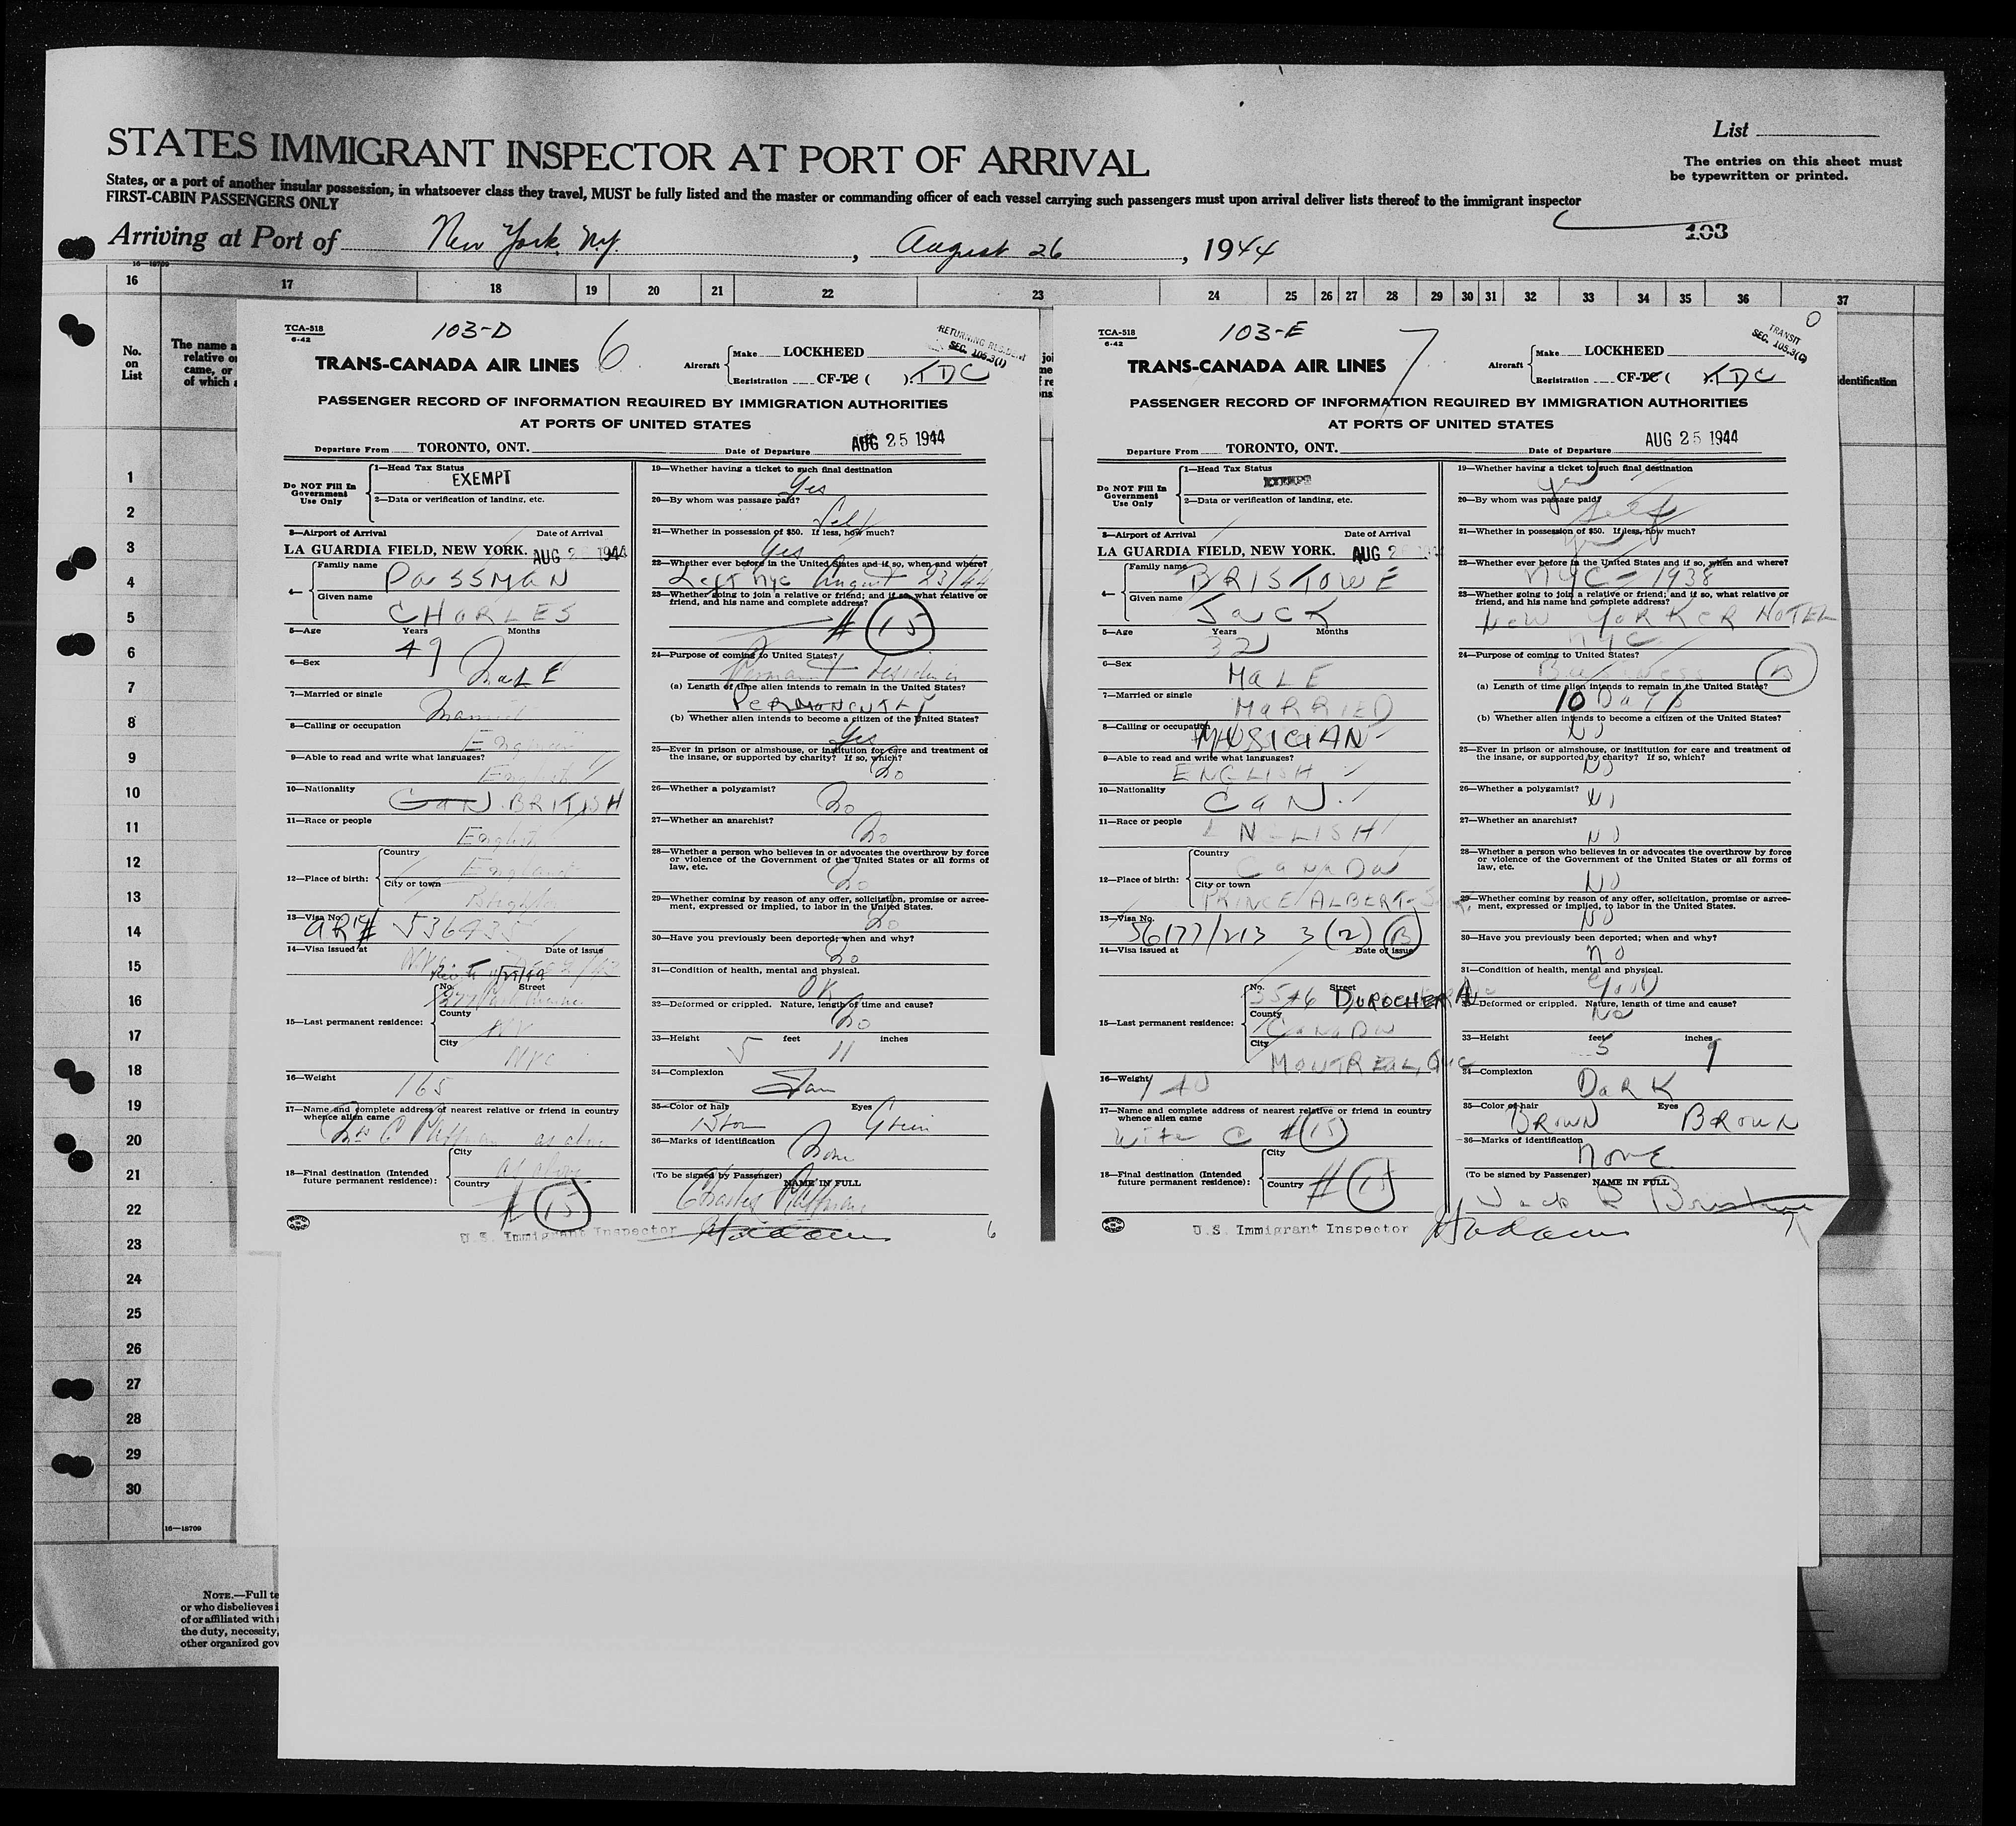 List
STATES IMMIGRANT INSPECTOR AT PORT OF ARRIVAL
The entries on this sheet must
be typewritten or printed.
States, or a port of another insular possession, in whatsoever class they travel, MUST be fully listed and the master or commanding officer of each vessel carrying such passengers must upon arrival deliver lists thereof to the immigrant inspector
FIRST-CABIN PASSENGERS ONLY
103
Arriving at Port of New York, N.Y. , August 26 , 1944
16-18709
16 17 18 19 20 21 22 23 24 25 26 27 28 29 30 31 32 33 34 35 36 37
No.
on
List
The name a
relative o
came, or
of which a
identification
1
2
3
4
5
6
7
8
9
10
11
12
13
14
15
16
17
18
19
20
21
22
23
24
25
26
27
28
29
30
16—18709
NOTE.—Full te
or who disbelieves i
of or affiliated with
the duty, necessity,
other organized gov
TCA-518
6-42
103-D
6
RETURNING RESIDENT
SEC. 105.3(1)
TRANS-CANADA AIR LINES
Aircraft Make LOCKHEED
Registration CF-TC ( ). TDC
PASSENGER RECORD OF INFORMATION REQUIRED BY IMMIGRATION AUTHORITIES
AT PORTS OF UNITED STATES
Departure From TORONTO, ONT. Date of Departure AUG 25 1944
Do NOT Fill In
Government
Use Only
1—Head Tax Status
EXEMPT
2—Data or verification of landing, etc.
3—Airport of Arrival Date of Arrival
LA GUARDIA FIELD, NEW YORK. AUG 2 1944
4— Family name PASSMAN
Given name CHARLES
5—Age Years Months
49
6—Sex MALE
7—Married or single Married
8—Calling or occupation Engineer
9—Able to read and write what languages?
English
10—Nationality CAN. BRITISH
11—Race or people English
12—Place of birth: Country England
City or town Brighton
13—Visa No.
AR# 536435
14—Visa issued at Date of issue
15—Last permanent residence: No. Street
County NY
City NYC
16—Weight 165
17—Name and complete address of nearest relative or friend in country
whence alien came
Mrs C Passman as above
18—Final destination (Intended
future permanent residence): City as above
Country # 15
U.S. Immigrant Inspector
19—Whether having a ticket to such final destination
Yes
20—By whom was passage paid?
Self
21—Whether in possession of $50. If less, how much?
Yes
22—Whether ever before in the United States and if so, when and where?
Left NYC August 23/44
23—Whether going to join a relative or friend; and if so, what relative or
friend, and his name and complete address?
# 15
24—Purpose of coming to United States?
Permanent residence
(a) Length of time alien intends to remain in the United States?
PERMANENTLY
(b) Whether alien intends to become a citizen of the United States?
Yes
25—Ever in prison or almshouse, or institution for care and treatment of
the insane, or supported by charity? If so, which?
No
26—Whether a polygamist? No
27—Whether an anarchist? No
28—Whether a person who believes in or advocates the overthrow by force
or violence of the Government of the United States or all forms of
law, etc.
No
29—Whether coming by reason of any offer, solicitation, promise or agree-
ment, expressed or implied, to labor in the United States.
No
30—Have you previously been deported; when and why?
No
31—Condition of health, mental and physical.
OK
32—Deformed or crippled. Nature, length of time and cause?
No
33—Height 5 feet 11 inches
34—Complexion
35—Color of hair Eyes Green
36—Marks of identification None
(To be signed by Passenger) NAME IN FULL
Charles Passman
6
TCA-518
6-42
103-E
7
0
TRANSIT
SEC. 105.3(C)
TRANS-CANADA AIR LINES
Aircraft Make LOCKHEED
Registration CF-TC ( ). TDC
PASSENGER RECORD OF INFORMATION REQUIRED BY IMMIGRATION AUTHORITIES
AT PORTS OF UNITED STATES
Departure From TORONTO, ONT. Date of Departure AUG 25 1944
Do NOT Fill In
Government
Use Only
1—Head Tax Status
EXEMPT
2—Data or verification of landing, etc.
3—Airport of Arrival Date of Arrival
LA GUARDIA FIELD, NEW YORK. AUG 2
4— Family name BRISTOWE
Given name JACK
5—Age Years Months
32
6—Sex MALE
7—Married or single MARRIED
8—Calling or occupation MUSICIAN
9—Able to read and write what languages?
ENGLISH
10—Nationality CAN.
11—Race or people ENGLISH
12—Place of birth: Country CANADA
City or town PRINCE ALBERT-
13—Visa No.
56177/213 3(2) B
14—Visa issued at Date of issue
15—Last permanent residence: No. Street 3546 DUROCHER
County CANADA
City MONTREAL, QUE
16—Weight 140
17—Name and complete address of nearest relative or friend in country
whence alien came
WIFE C # 15
18—Final destination (Intended
future permanent residence): City
Country # 15
U.S. Immigrant Inspector
19—Whether having a ticket to such final destination
Yes
20—By whom was passage paid?
Self
21—Whether in possession of $50. If less, how much?
Yes
22—Whether ever before in the United States and if so, when and where?
NYC - 1938
23—Whether going to join a relative or friend; and if so, what relative or
friend, and his name and complete address?
NEW YORKER HOTEL
NYC
24—Purpose of coming to United States?
Business B
(a) Length of time alien intends to remain in the United States?
10 Days
(b) Whether alien intends to become a citizen of the United States?
No
25—Ever in prison or almshouse, or institution for care and treatment of
the insane, or supported by charity? If so, which?
No
26—Whether a polygamist?
No
27—Whether an anarchist?
NO
28—Whether a person who believes in or advocates the overthrow by force
or violence of the Government of the United States or all forms of
law, etc.
NO
29—Whether coming by reason of any offer, solicitation, promise or agree-
ment, expressed or implied, to labor in the United States.
NO
30—Have you previously been deported; when and why?
no
31—Condition of health, mental and physical.
good
32—Deformed or crippled. Nature, length of time and cause?
No
33—Height 5 feet 9 inches
34—Complexion DARK
35—Color of hair BROWN Eyes BROWN
36—Marks of identification NONE
(To be signed by Passenger) NAME IN FULL
Jack R Bristowe